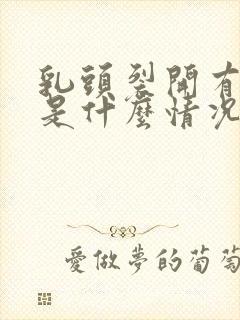 乳頭裂開有
是什麼情況
愛做夢的葡萄